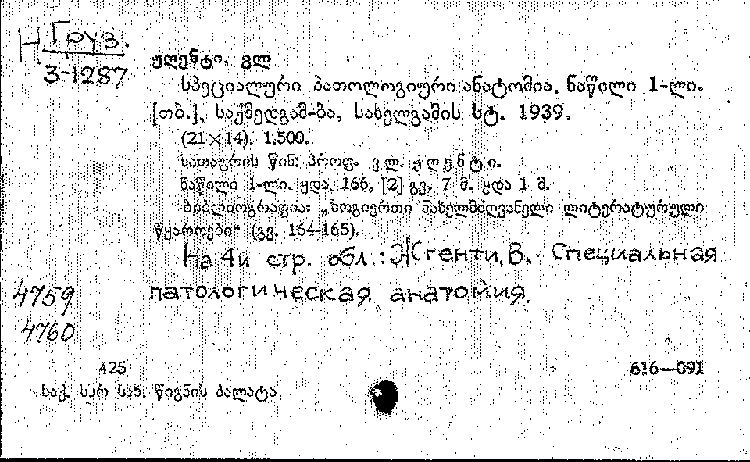 Н Груз.
3-1287
ჟღენტი, ვლ
სპეციალური პათოლოგიური ანატომია, ნაწილი 1-ლი.
[თბ.], საქმედგამ-ბა, სახელგამის სტ. 1939.
(21×14). 1,500.
სათაურის წინ: პროფ. ვლ. ჟღენტი.
ნაწილი 1-ლი. ყდა, 166, [2] გვ, 7 მ. ყდა 1 მ.
ბიბლიოგრაფია: „ზოგიერთი სახელმძღვანელო ლიტერატურული
წყაროები“ (გვ. 164-165).
На 4й стр. обл.: Жгенти, В. Специальная
патологическая анатомия.
4759
4760
425
616—091
საქ. სსრ სახ. წიგნის პალატა